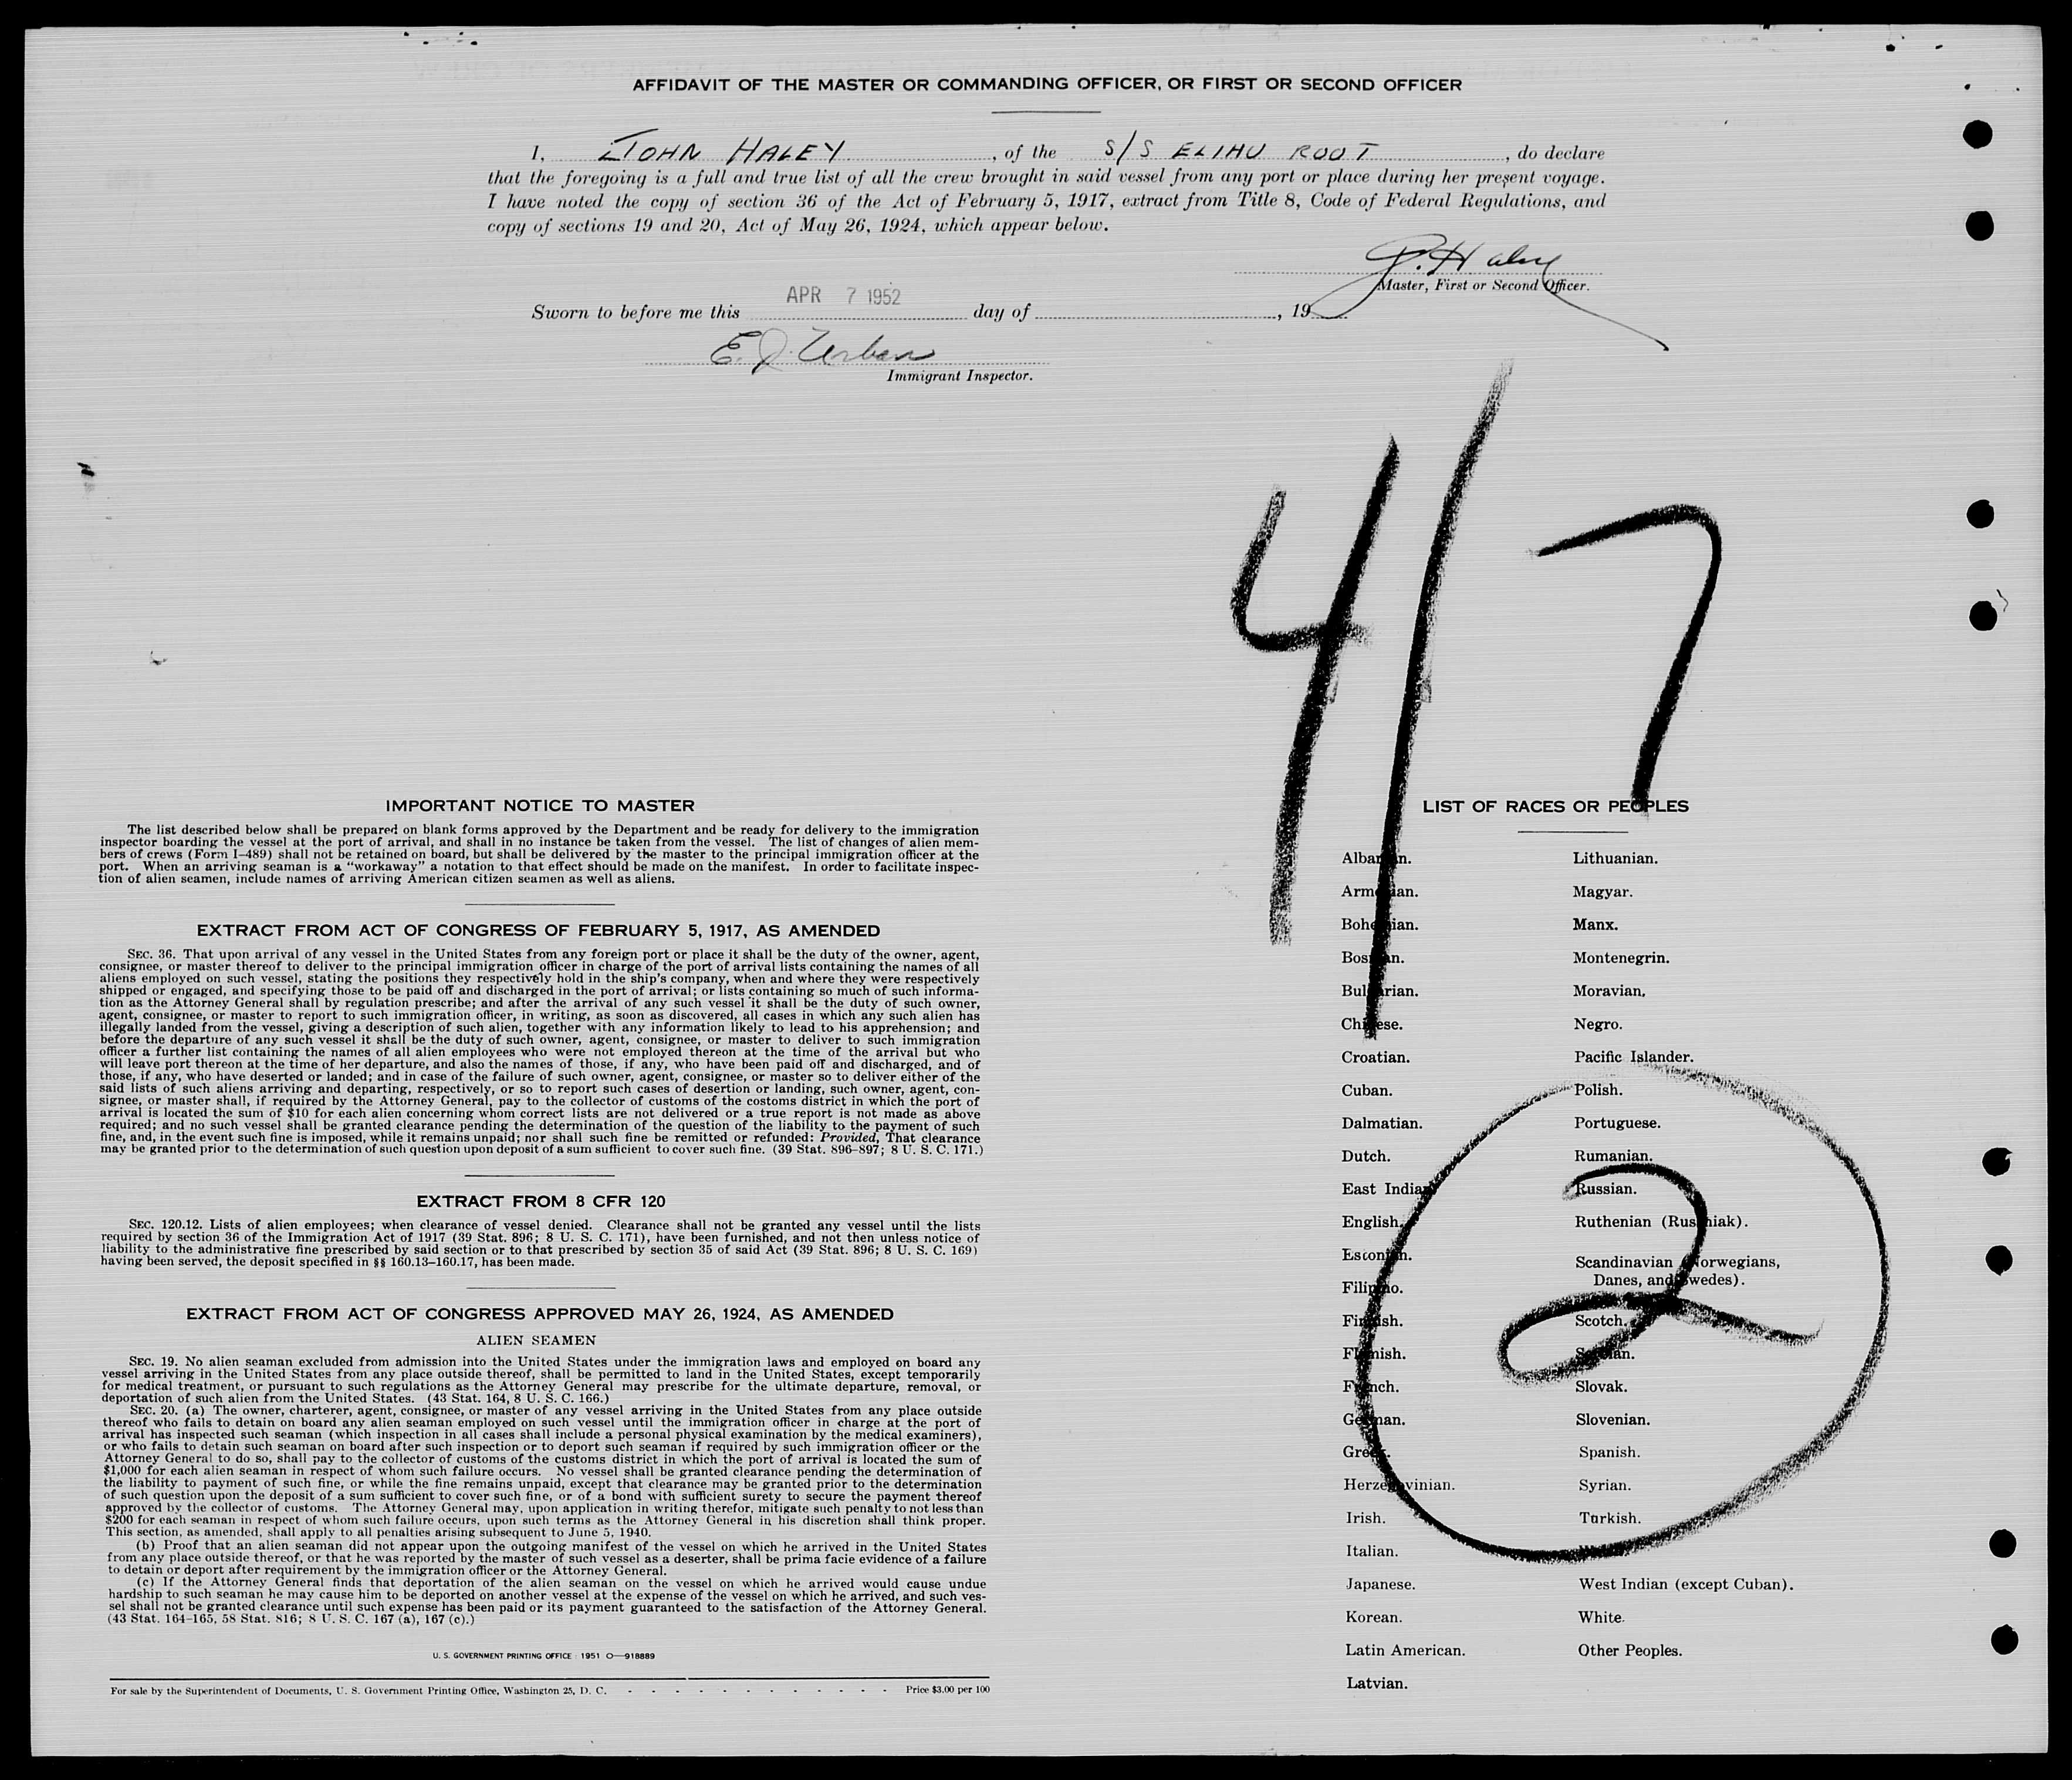 AFFIDAVIT OF THE MASTER OR COMMANDING OFFICER, OR FIRST OR SECOND OFFICER
I, JOHN HALEY, of the S/S ELIHU ROOT, do declare
that the foregoing is a full and true list of all the crew brought in said vessel from any port or place during her present voyage.
I have noted the copy of section 36 of the Act of February 5, 1917, extract from Title 8, Code of Federal Regulations, and
copy of sections 19 and 20, Act of May 26, 1924, which appear below.
J. Haley
Master, First or Second Officer.
Sworn to before me this APR 7 1952 day of , 19
E. J. Urban
Immigrant Inspector.
4/7
IMPORTANT NOTICE TO MASTER
The list described below shall be prepared on blank forms approved by the Department and be ready for delivery to the immigration
inspector boarding the vessel at the port of arrival, and shall in no instance be taken from the vessel. The list of changes of alien mem-
bers of crews (Form I-489) shall not be retained on board, but shall be delivered by the master to the principal immigration officer at the
port. When an arriving seaman is a "workaway" a notation to that effect should be made on the manifest. In order to facilitate inspec-
tion of alien seamen, include names of arriving American citizen seamen as well as aliens.
EXTRACT FROM ACT OF CONGRESS OF FEBRUARY 5, 1917, AS AMENDED
SEC. 36. That upon arrival of any vessel in the United States from any foreign port or place it shall be the duty of the owner, agent,
consignee, or master thereof to deliver to the principal immigration officer in charge of the port of arrival lists containing the names of all
aliens employed on such vessel, stating the positions they respectively hold in the ship's company, when and where they were respectively
shipped or engaged, and specifying those to be paid off and discharged in the port of arrival; or lists containing so much of such informa-
tion as the Attorney General shall by regulation prescribe; and after the arrival of any such vessel it shall be the duty of such owner,
agent, consignee, or master to report to such immigration officer, in writing, as soon as discovered, all cases in which any such alien has
illegally landed from the vessel, giving a description of such alien, together with any information likely to lead to his apprehension; and
before the departure of any such vessel it shall be the duty of such owner, agent, consignee, or master to deliver to such immigration
officer a further list containing the names of all alien employees who were not employed thereon at the time of the arrival but who
will leave port thereon at the time of her departure, and also the names of those, if any, who have been paid off and discharged, and of
those, if any, who have deserted or landed; and in case of the failure of such owner, agent, consignee, or master so to deliver either of the
said lists of such aliens arriving and departing, respectively, or so to report such cases of desertion or landing, such owner, agent, con-
signee, or master shall, if required by the Attorney General, pay to the collector of customs of the costoms district in which the port of
arrival is located the sum of $10 for each alien concerning whom correct lists are not delivered or a true report is not made as above
required; and no such vessel shall be granted clearance pending the determination of the question of the liability to the payment of such
fine, and, in the event such fine is imposed, while it remains unpaid; nor shall such fine be remitted or refunded: Provided, That clearance
may be granted prior to the determination of such question upon deposit of a sum sufficient to cover such fine. (39 Stat. 896-897; 8 U. S. C. 171.)
EXTRACT FROM 8 CFR 120
SEC. 120.12. Lists of alien employees; when clearance of vessel denied. Clearance shall not be granted any vessel until the lists
required by section 36 of the Immigration Act of 1917 (39 Stat. 896; 8 U. S. C. 171), have been furnished, and not then unless notice of
liability to the administrative fine prescribed by said section or to that prescribed by section 35 of said Act (39 Stat. 896; 8 U. S. C. 169)
having been served, the deposit specified in §§ 160.13-160.17, has been made.
EXTRACT FROM ACT OF CONGRESS APPROVED MAY 26, 1924, AS AMENDED
ALIEN SEAMEN
SEC. 19. No alien seaman excluded from admission into the United States under the immigration laws and employed on board any
vessel arriving in the United States from any place outside thereof, shall be permitted to land in the United States, except temporarily
for medical treatment, or pursuant to such regulations as the Attorney General may prescribe for the ultimate departure, removal, or
deportation of such alien from the United States. (43 Stat. 164, 8 U. S. C. 166.)
SEC. 20. (a) The owner, charterer, agent, consignee, or master of any vessel arriving in the United States from any place outside
thereof who fails to detain on board any alien seaman employed on such vessel until the immigration officer in charge at the port of
arrival has inspected such seaman (which inspection in all cases shall include a personal physical examination by the medical examiners),
or who fails to detain such seaman on board after such inspection or to deport such seaman if required by such immigration officer or the
Attorney General to do so, shall pay to the collector of customs of the customs district in which the port of arrival is located the sum of
$1,000 for each alien seaman in respect of whom such failure occurs. No vessel shall be granted clearance pending the determination of
the liability to payment of such fine, or while the fine remains unpaid, except that clearance may be granted prior to the determination
of such question upon the deposit of a sum sufficient to cover such fine, or of a bond with sufficient surety to secure the payment thereof
approved by the collector of customs. The Attorney General may, upon application in writing therefor, mitigate such penalty to not less than
$200 for each seaman in respect of whom such failure occurs, upon such terms as the Attorney General in his discretion shall think proper.
This section, as amended, shall apply to all penalties arising subsequent to June 5, 1940.
(b) Proof that an alien seaman did not appear upon the outgoing manifest of the vessel on which he arrived in the United States
from any place outside thereof, or that he was reported by the master of such vessel as a deserter, shall be prima facie evidence of a failure
to detain or deport after requirement by the immigration officer or the Attorney General.
(c) If the Attorney General finds that deportation of the alien seaman on the vessel on which he arrived would cause undue
hardship to such seaman he may cause him to be deported on another vessel at the expense of the vessel on which he arrived, and such ves-
sel shall not be granted clearance until such expense has been paid or its payment guaranteed to the satisfaction of the Attorney General.
(43 Stat. 164-165, 58 Stat. 816; 8 U. S. C. 167 (a), 167 (c).)
U. S. GOVERNMENT PRINTING OFFICE : 1951 O—918889
For sale by the Superintendent of Documents, U. S. Government Printing Office, Washington 25, D. C. - - - - - - - - - - - - Price $3.00 per 100
LIST OF RACES OR PEOPLES
Albanian.
Armenian.
Bohemian.
Bosnian.
Bulgarian.
Chinese.
Croatian.
Cuban.
Dalmatian.
Dutch.
East Indian.
English.
Estonian.
Filipino.
Finnish.
Flemish.
French.
German.
Greek.
Herzegovinian.
Irish.
Italian.
Japanese.
Korean.
Latin American.
Latvian.
Lithuanian.
Magyar.
Manx.
Montenegrin.
Moravian.
Negro.
Pacific Islander.
Polish.
Portuguese.
Rumanian.
Russian.
Ruthenian (Russniak).
Scandinavian (Norwegians,
Danes, and Swedes).
Scotch.
Serbian.
Slovak.
Slovenian.
Spanish.
Syrian.
Turkish.
West Indian (except Cuban).
White.
Other Peoples.
2